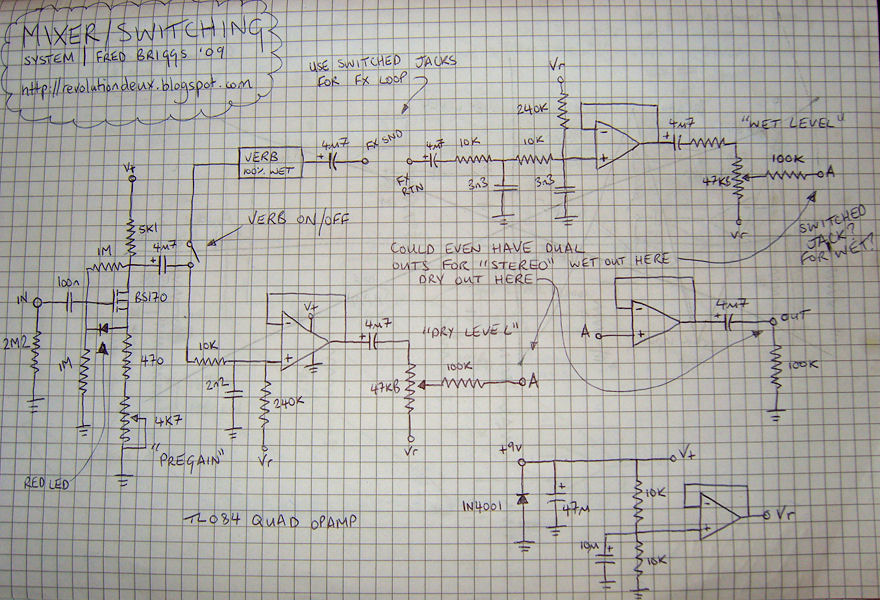 MIXER/SWITCHING
SYSTEM | FRED BRIGGS '09
http://revolutiondeux.blogspot.com
USE SWITCHED JACKS
FOR FX LOOP
Vr
240K
4µ7
"WET LEVEL"
VERB
100% WET
+ 4µ7
FX SND
FX RTN
+ 4µ7
10K
10K
3n3
3n3
-
+
100K
A
47KB
Vr
SWITCHED
JACK?
FOR WET?
V+
5K1
1M
4µ7
VERB ON/OFF
COULD EVEN HAVE DUAL
OUTS FOR "STEREO" WET OUT HERE
DRY OUT HERE
IN
100n
BS170
2M2
1M
470
4K7
"PREGAIN"
RED LED
10K
2n2
240K
Vr
V+
-
+
4µ7
"DRY LEVEL"
47KB
100K
A
Vr
A
-
+
4µ7
OUT
100K
TL084 QUAD OPAMP
+9V
V+
1N4001
+
47µ
10K
10µ
+
10K
-
+
Vr